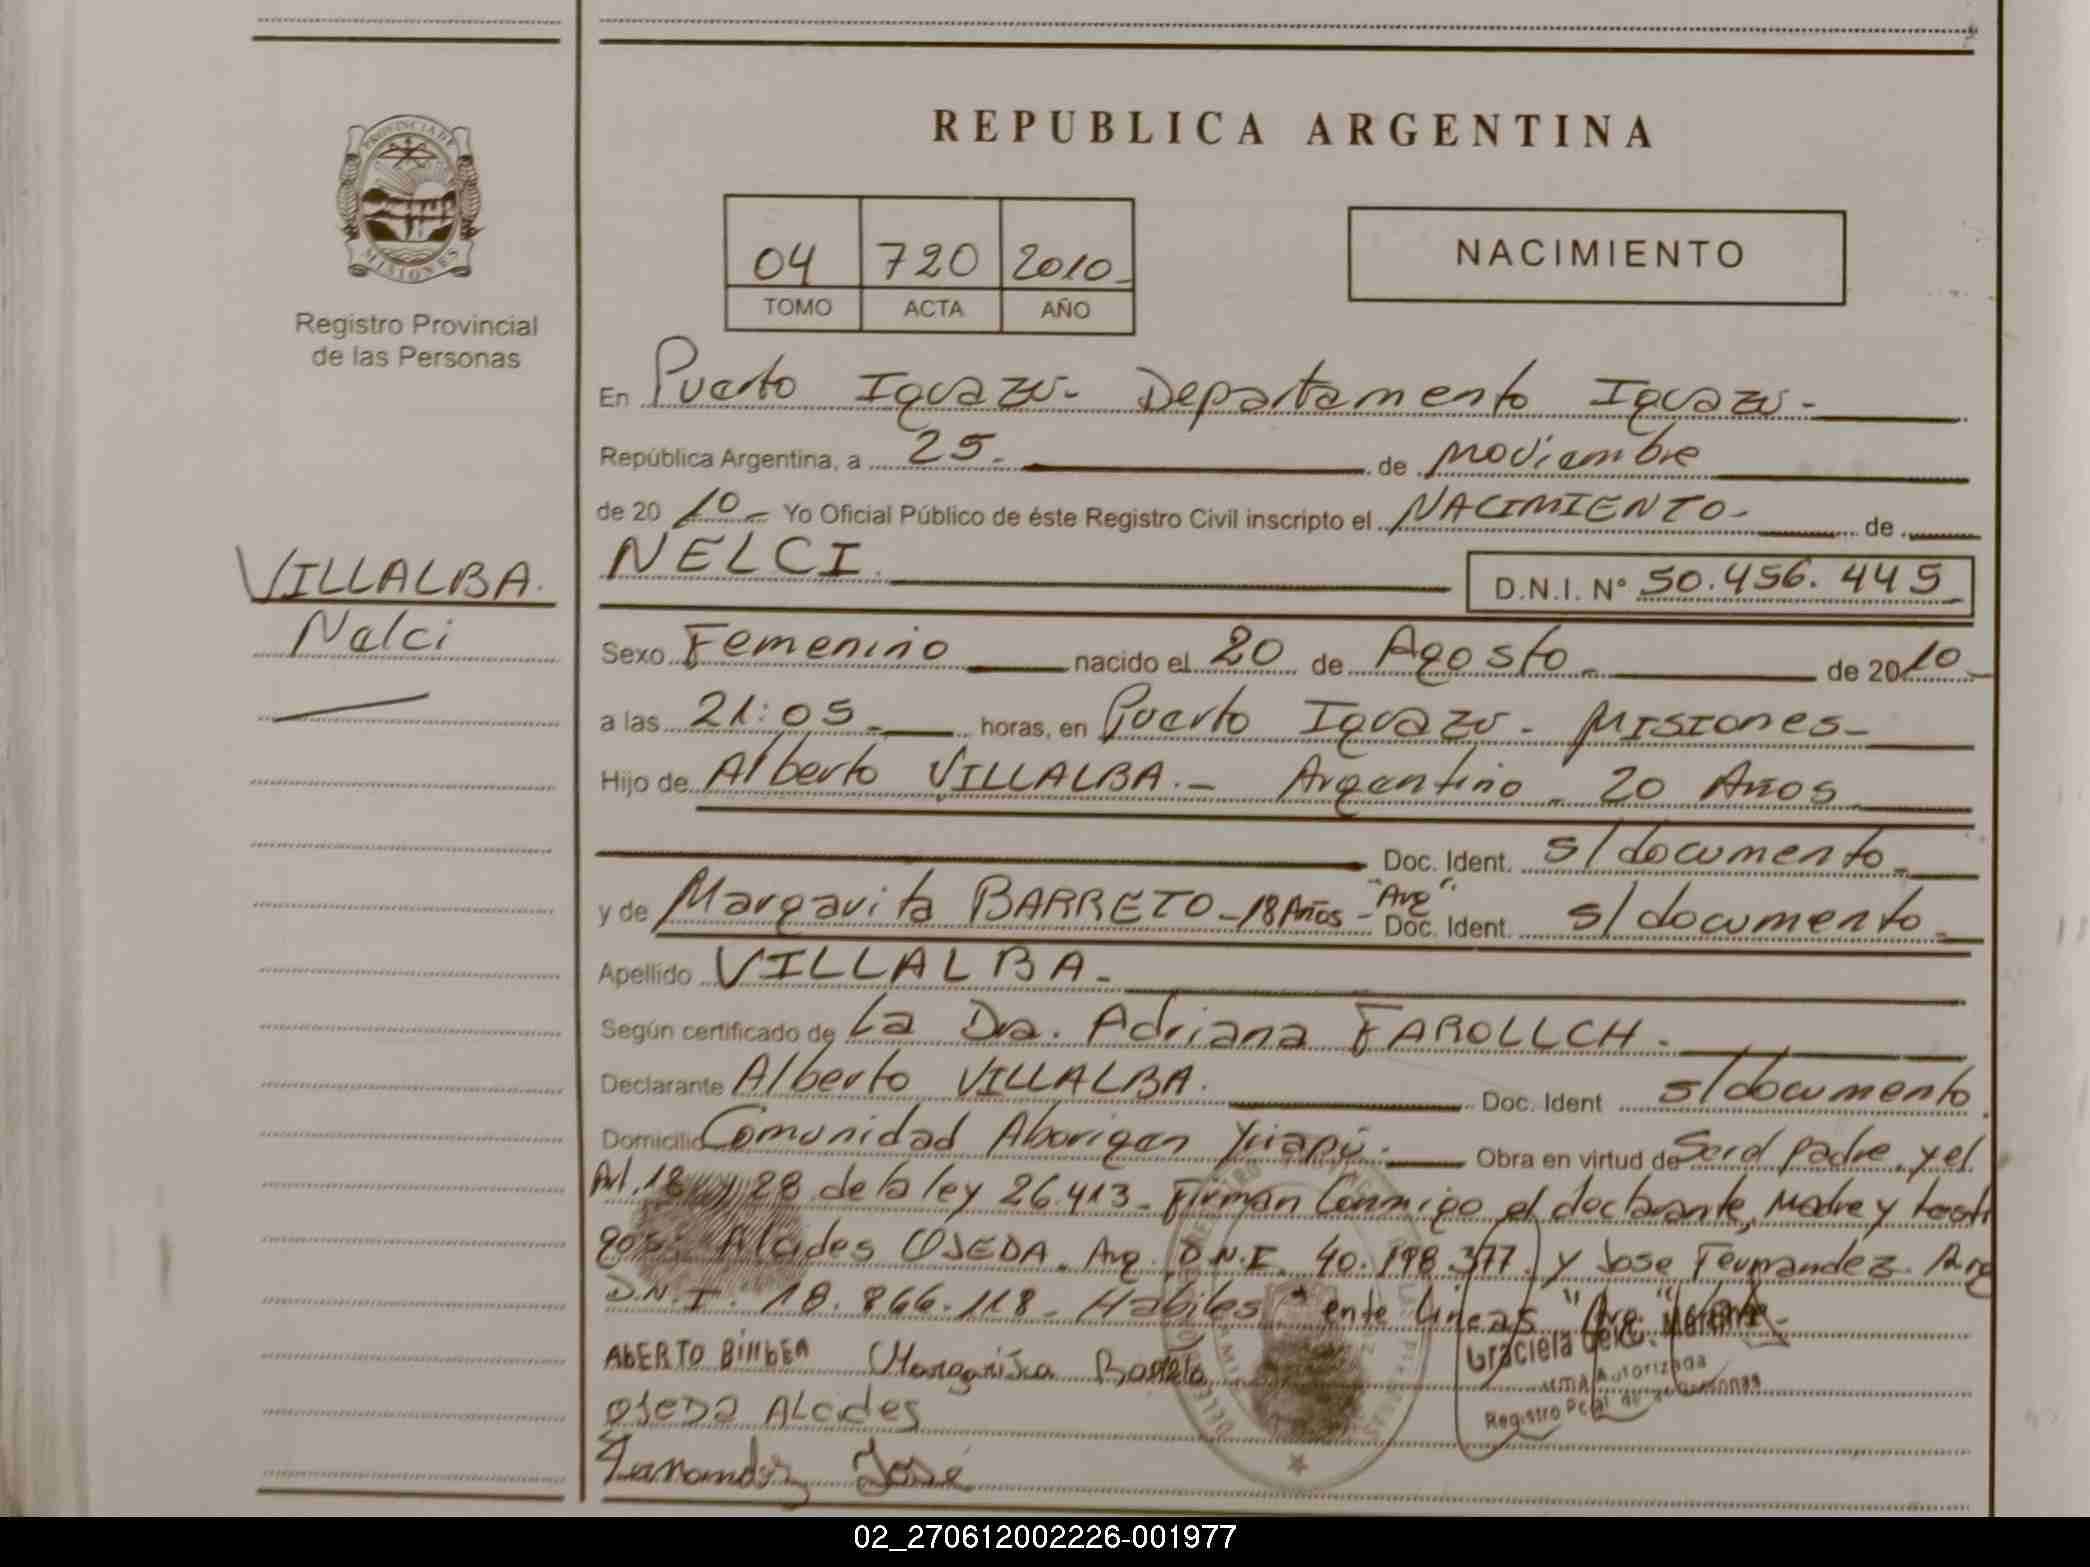 REPUBLICA ARGENTINA
PROVINCIA DE MISIONES
Registro Provincial
de las Personas
04 720 2010-
TOMO ACTA AÑO
NACIMIENTO
En Puerto Iguazú- Departamento Iguazú-
República Argentina, a 25- de Noviembre
de 20 10- Yo Oficial Público de éste Registro Civil inscripto el NACIMIENTO- de
VILLALBA.
Nelci
NELCI. D.N.I. Nº 50.456.445
Sexo Femenino nacido el 20 de Agosto- de 20 10-
a las 21:05- horas, en Puerto Iguazú- MISIONES-
Hijo de Alberto VILLALBA.- Argentino- 20 Años-
Doc. Ident. s/documento-
y de Margarita BARRETO-18 Años- "Arg" Doc. Ident. s/documento-
Apellido VILLALBA-
Según certificado de La Dra. Adriana FAROLLCH.-
Declarante Alberto VILLALBA. Doc. Ident s/documento.
Domicilio Comunidad Aborigen Yriapú.- Obra en virtud de Ser el padre, y el
Art. 18 y 28 de la ley 26.413- Firman Conmigo el declarante, Madre y testi
gos: Alcides OJEDA. Arg. D.N.I. 40.198.377. y Jose Fernandez. Arg
D.N.I. 18.866.118- Habiles." ente lineas "Arg."
ABERTO Margarita
Graciela
Autorizada
Registro Pcial de las Personas
OJEDA ALcides
José
02_270612002226-001977